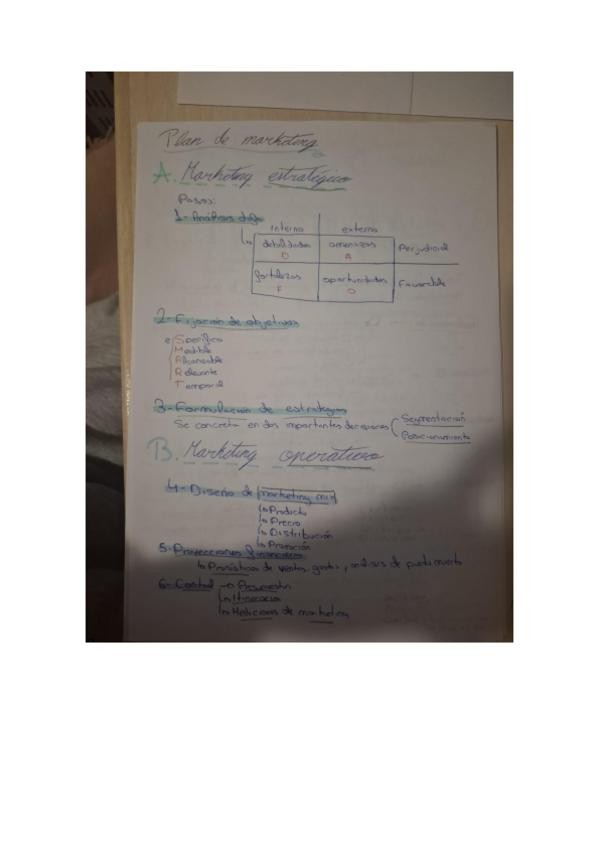 Plan de marketing
A. Marketing estratégico
Pasos:
1- Análisis dafo
interno externo
debilidades amenazas Perjudicial
D A
fortalezas oportunidades Favorable
F O
2- Fijación de objetivos
eSpecífico
Medible
Alcanzable
Relevante
Temporal
3- Formulación de estrategias
Se concreta en dos importantes decisiones Segmentación
Posicionamiento
B. Marketing operativo
4- Diseño de marketing mix
Producto
Precio
Distribución
Promoción
5- Proyecciones financieras
Pronósticos de ventas, gastos, y análisis de punto muerto
6- Control
Mediciones de marketing